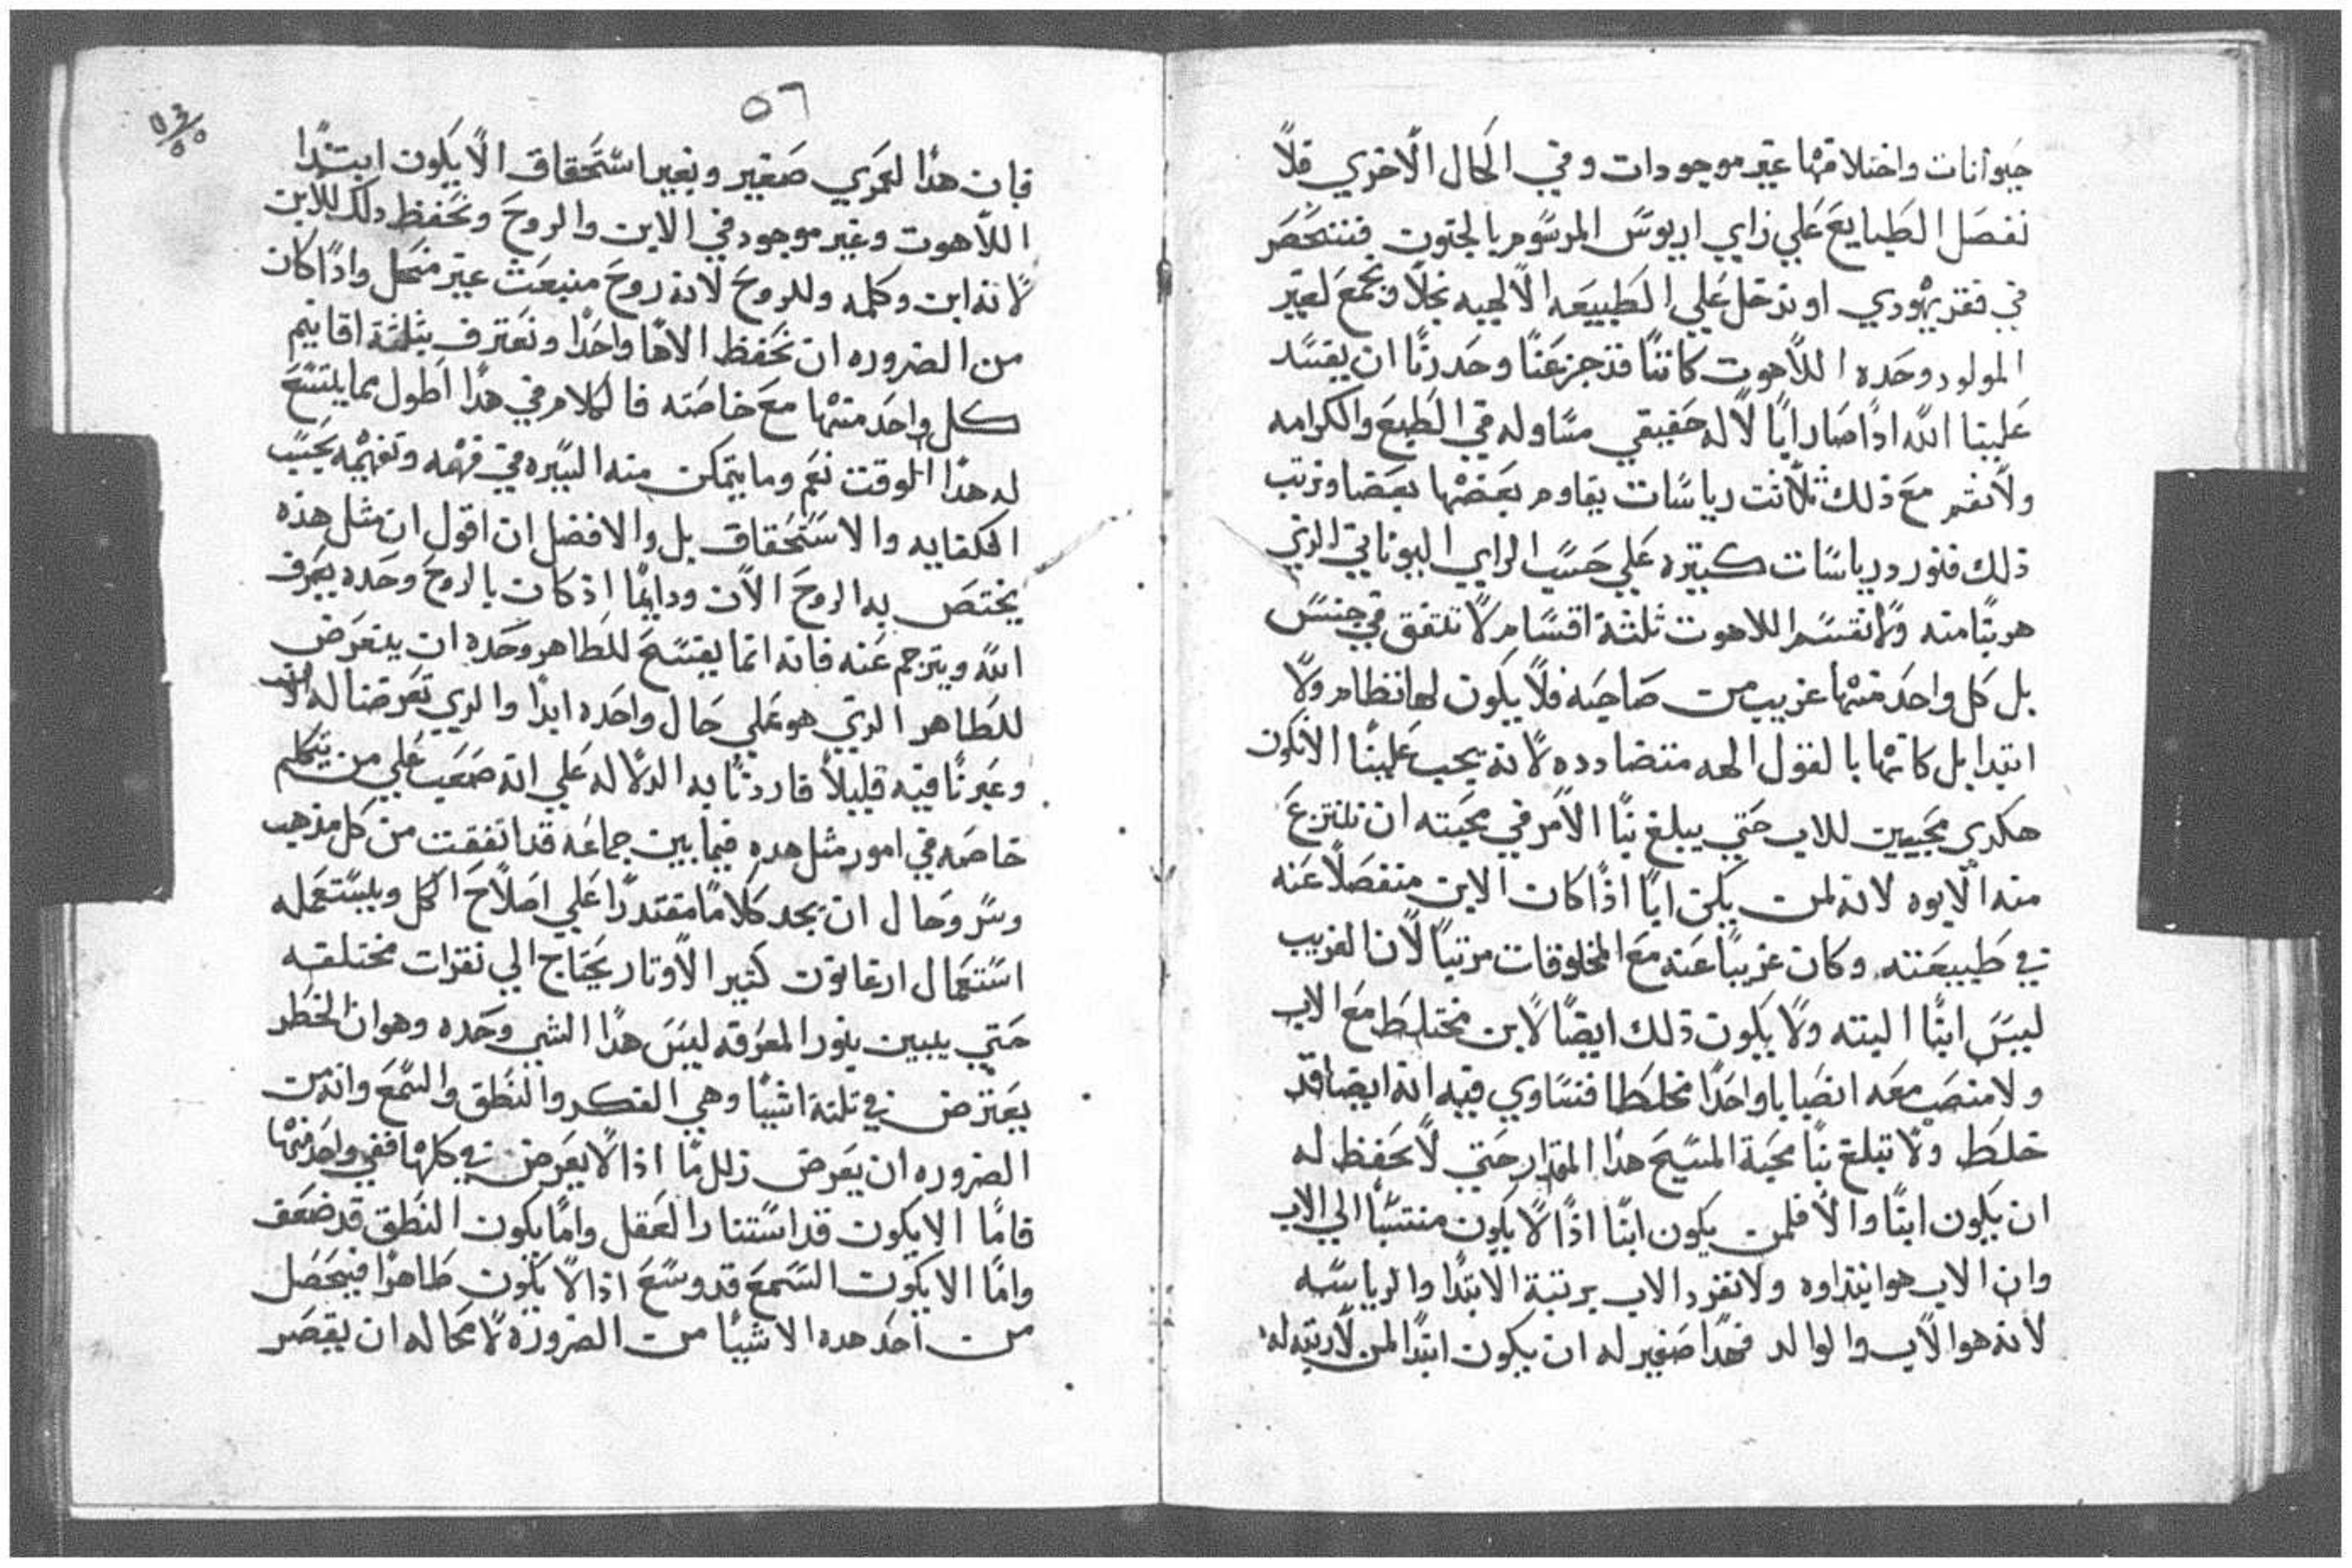 حيوانات واختلافها غير موجودات وفي الحال الاخري فلا
نفصل الطبايع علي راي اريوس المرسوم بالجنون فننحصر
في فقر يهودي او ندخل علي الطبيعه الالهيه بخلا ونجمع لغير
المولود وحده اللاهوت كاننا قد جزعنا وحدرنا ان يفسد
علينا الله اذا صار ابا لاله حقيقي مساو له في الطبع والكرامه
ولا نقم مع ذلك ثلاثت رياسات يقاوم بعضها بعضا ونرتب
ذلك فنورد رياسات كبيره علي حسب الراي اليوناني الذي
هربنا منه ولا نقسم اللاهوت ثلثة اقسام لا تتفق في جنس
بل كل واحد منها غريب من صاحبه فلا يكون لها نظام ولا
ابتدا بل كانها بالقول الهه متضادده لانه يجب علينا الا نكون
هكدي محبين للاب حتي يبلغ بنا الامر في محبته ان ننتزع
منه الابوه لانه لمن يكن ابا اذا كان الابن منفصلا عنه
في طبيعته وكان غريبا عنه مع المخلوقات مرتبا لان الغريب
ليس ابنا البته ولا يكون ذلك ايضا لابن مختلط مع الاب
ولا منصب معه انصبابا واحدا مخلطا فنساوي فيه انه ايضا قد
خلط ولا تبلغ بنا محبة المسيح هذا المقدار حتي لا نحفظ له
ان يكون ابنا والا فلمن يكون ابنا اذا لا يكون منتسبا الي الاب
وان الاب هو ابتداوه ولا نفرد الاب برتبة الابتدا والرياسه
لانه هو الاب والوالد فهدا صغير له ان يكون ابتدا لمن لا رتبه له
٥٦
فان هدا لعمري صغير وبغير استحقاق الا يكون ابتدا
اللاهوت وغير موجود في الابن والروح ونحفظ دلك للابن
لانه ابن وكلمه وللروح لانه روح منبعث غير منحل واذا كان
من الضروره ان نحفظ الاها واحدا ونعترف بثلثة اقانيم
كل واحد منها مع خاصته فالكلام في هدا اطول مما يتسع
له هدا الوقت نعم وما يتمكن منه السيره في فهمه وتفهيمه بحسب
الكفايه والاستحقاق بل والافضل ان اقول ان مثل هذه
يختص به الروح الان ودايما اذ كان بالروح وحده يعرف
الله ويترجم عنه فانه انما يفسح للطاهر وحده ان يتعرض
للطاهر الذي هو علي حال واحده ابدا والدي تعرضنا له الان
وعبرنا فيه قليلا فاردنا به الدلاله علي انه صعب علي من يتكلم
خاصه في امور مثل هده فيما بين جماعه قد اتفقت من كل مذهب
وسر وحال ان يجد كلاما مقتدرا علي اصلاح الكل ويستعمله
استعمال ارغانون كثير الاوتار يحتاج الي نقرات مختلفه
حتي يبين بنور المعرفه ليس هدا الشي وحده وهو ان الخطر
يعترض في ثلثة اشيا وهي الفكر والنطق والسمع وانه من
الضروره ان يعرض زلل ما اذا لا يعرض في كلها ففي واحد منها
فاما الا يكون قد استنار العقل واما يكون النطق قد ضعف
واما الا يكون السمع قد وسع اذا لا يكون طاهرا فيحصل
من احد هده الاشيا من الضروره لا محاله ان يقصر